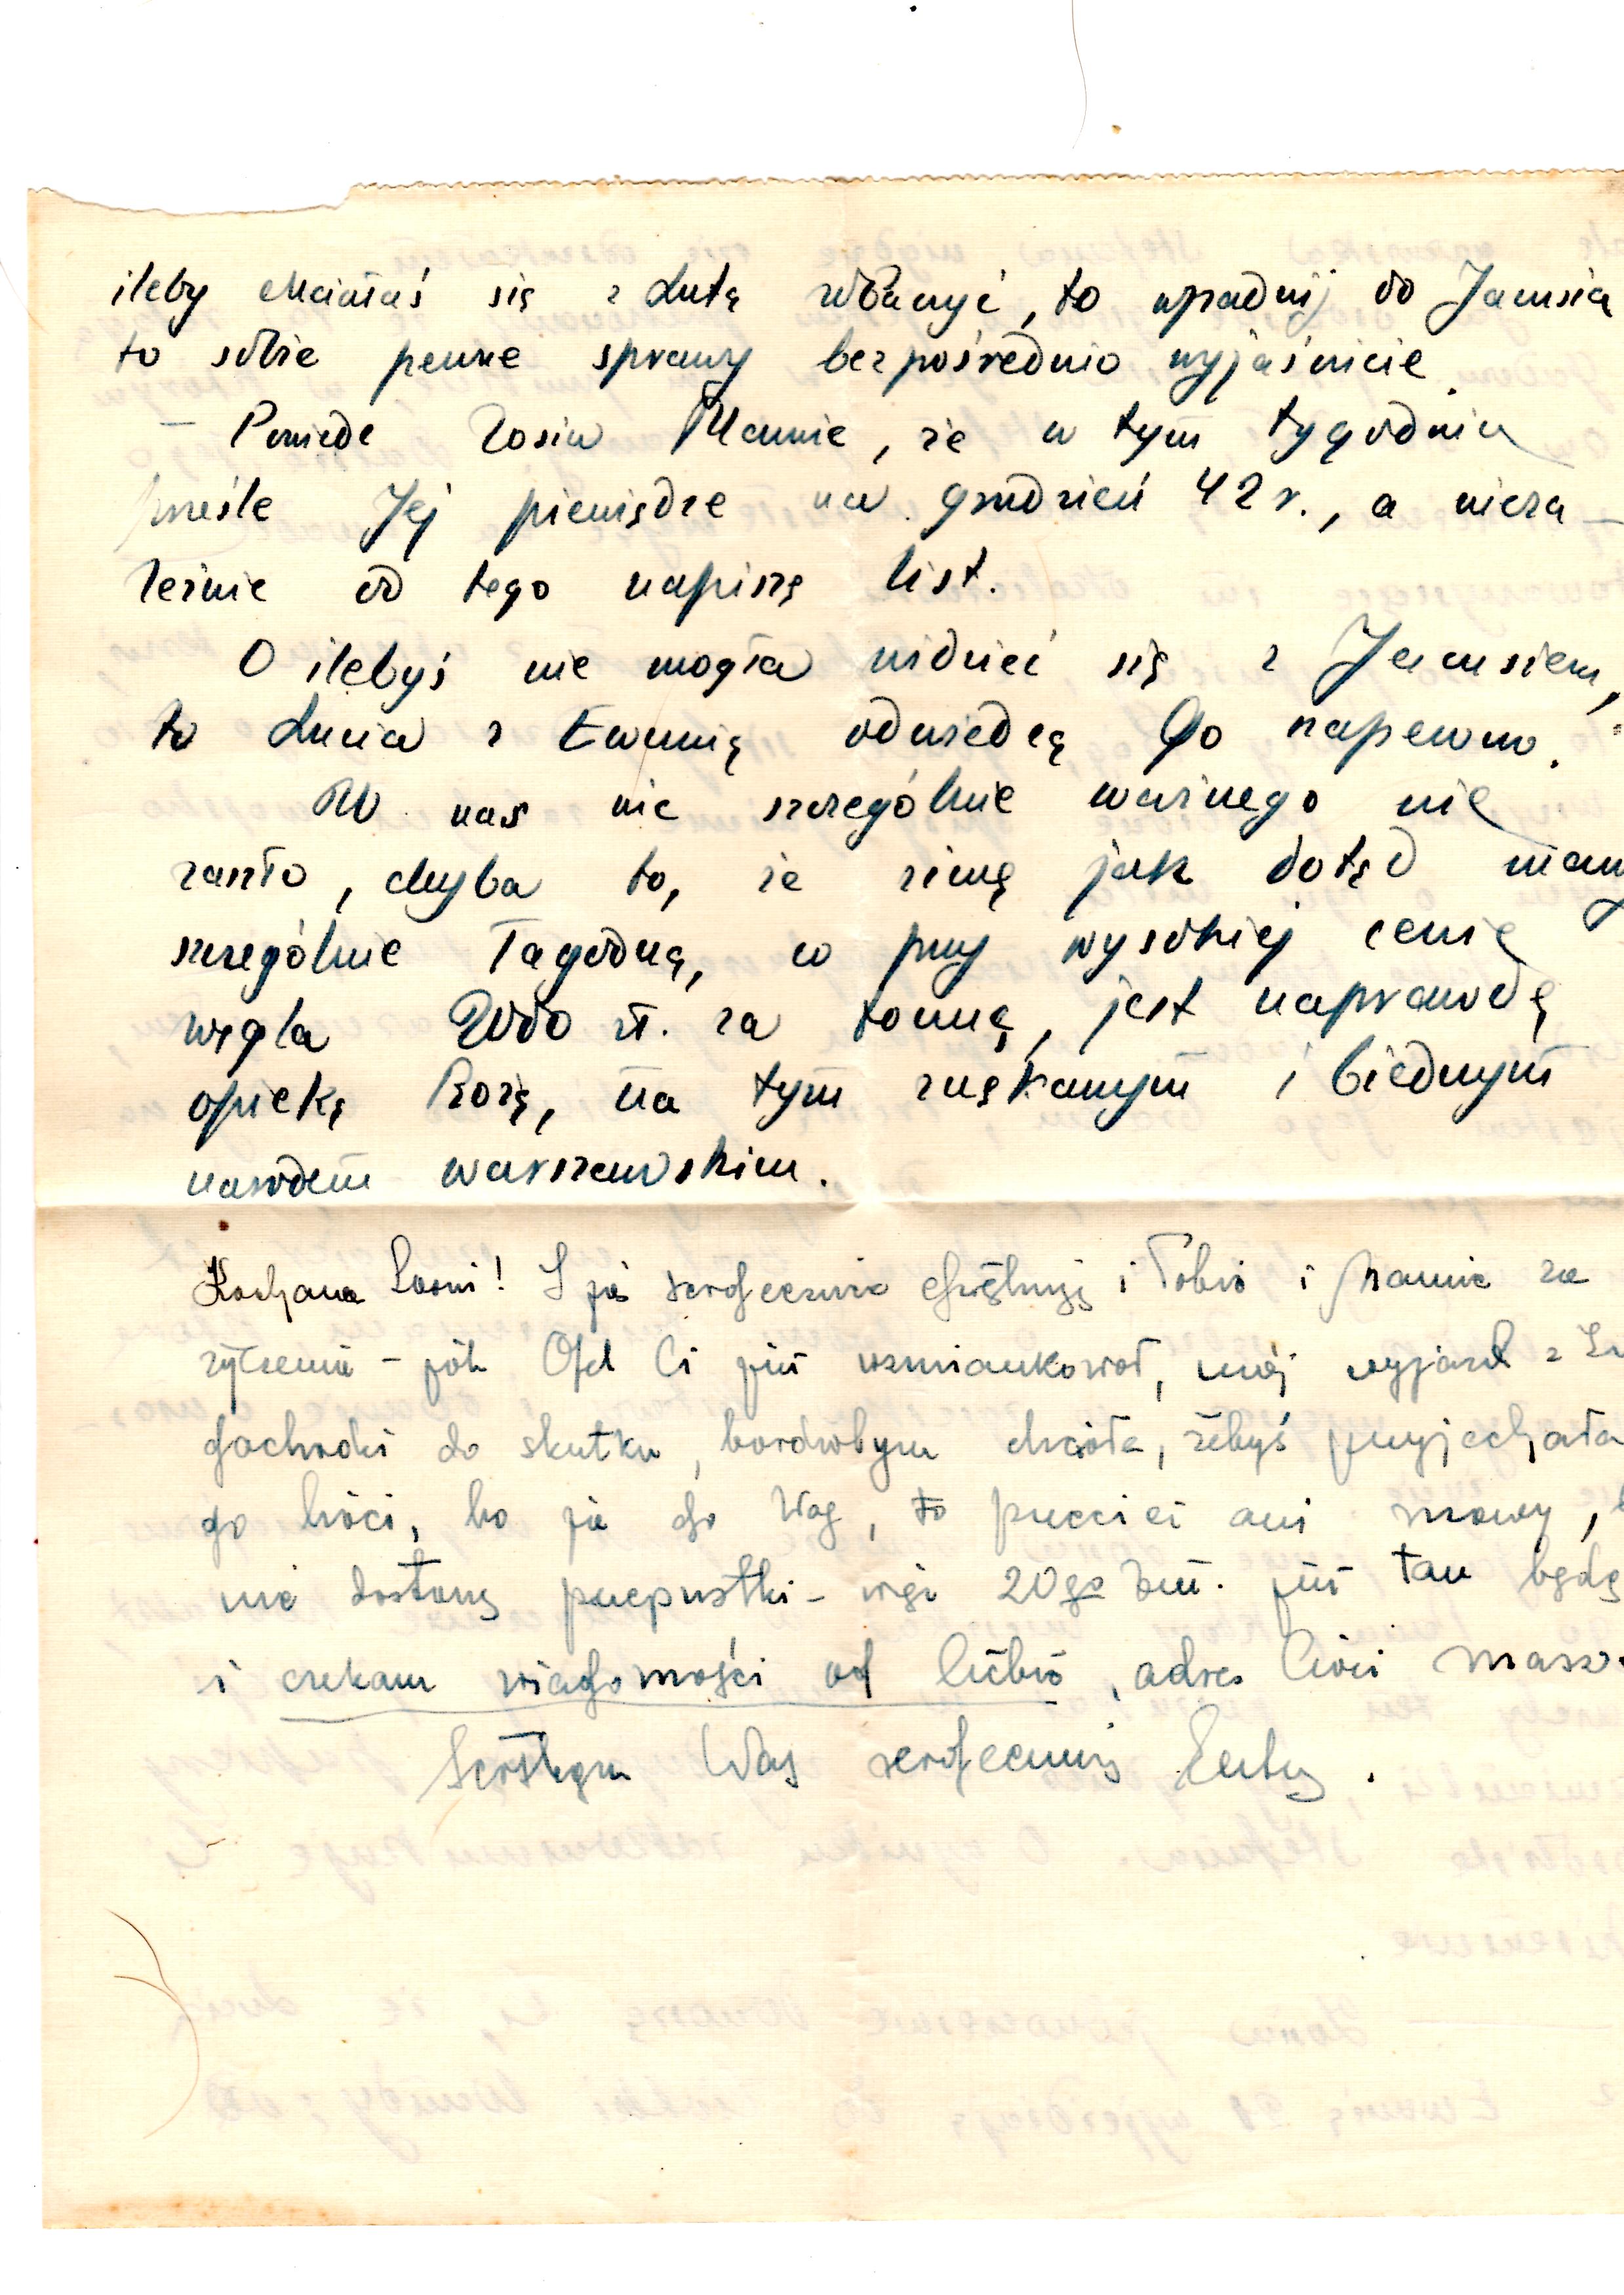 ileby chciałaś się z Lutą zobaczyć, to wpadnij do Janusia
to sobie pewne sprawy bezpośrednio wyjaśnicie.
– Powiedz Zosiu Mamie, że w tym tygodniu
prześlę Jej pieniądze na grudzień 42 r., a nieza-
leżnie od tego napiszę list.
O ilebyś nie mogła widzieć się z Janusiem,
to Lucia z Ewunią odwiedzą Go napewno.
U nas nic szczególnie ważnego nie
zaszło, chyba to, że zimę jak dotąd mamy
szczególnie łagodną, co przy wysokiej cenie
węgla 2000 zł. za tonnę, jest naprawdę
opieką Bożą, na tym znękanym i biednym
narodem warszawskim.
Kochana Zosiu! I ja serdecznie dziękuję i Tobie i Mamie za
życzenia – jak Ci już wzmiankował, mój wyjazd z
dochodzi do skutku, bardzobym chciała, żebyś przyjechała
do cioci, bo ja do Was, to przecież ani mowy,
nie dostanę przepustki – więc 20go bm. już tam będę
i czekam wiadomości od Ciebie, adres Cioci masz.
Ściskam Was serdecznie